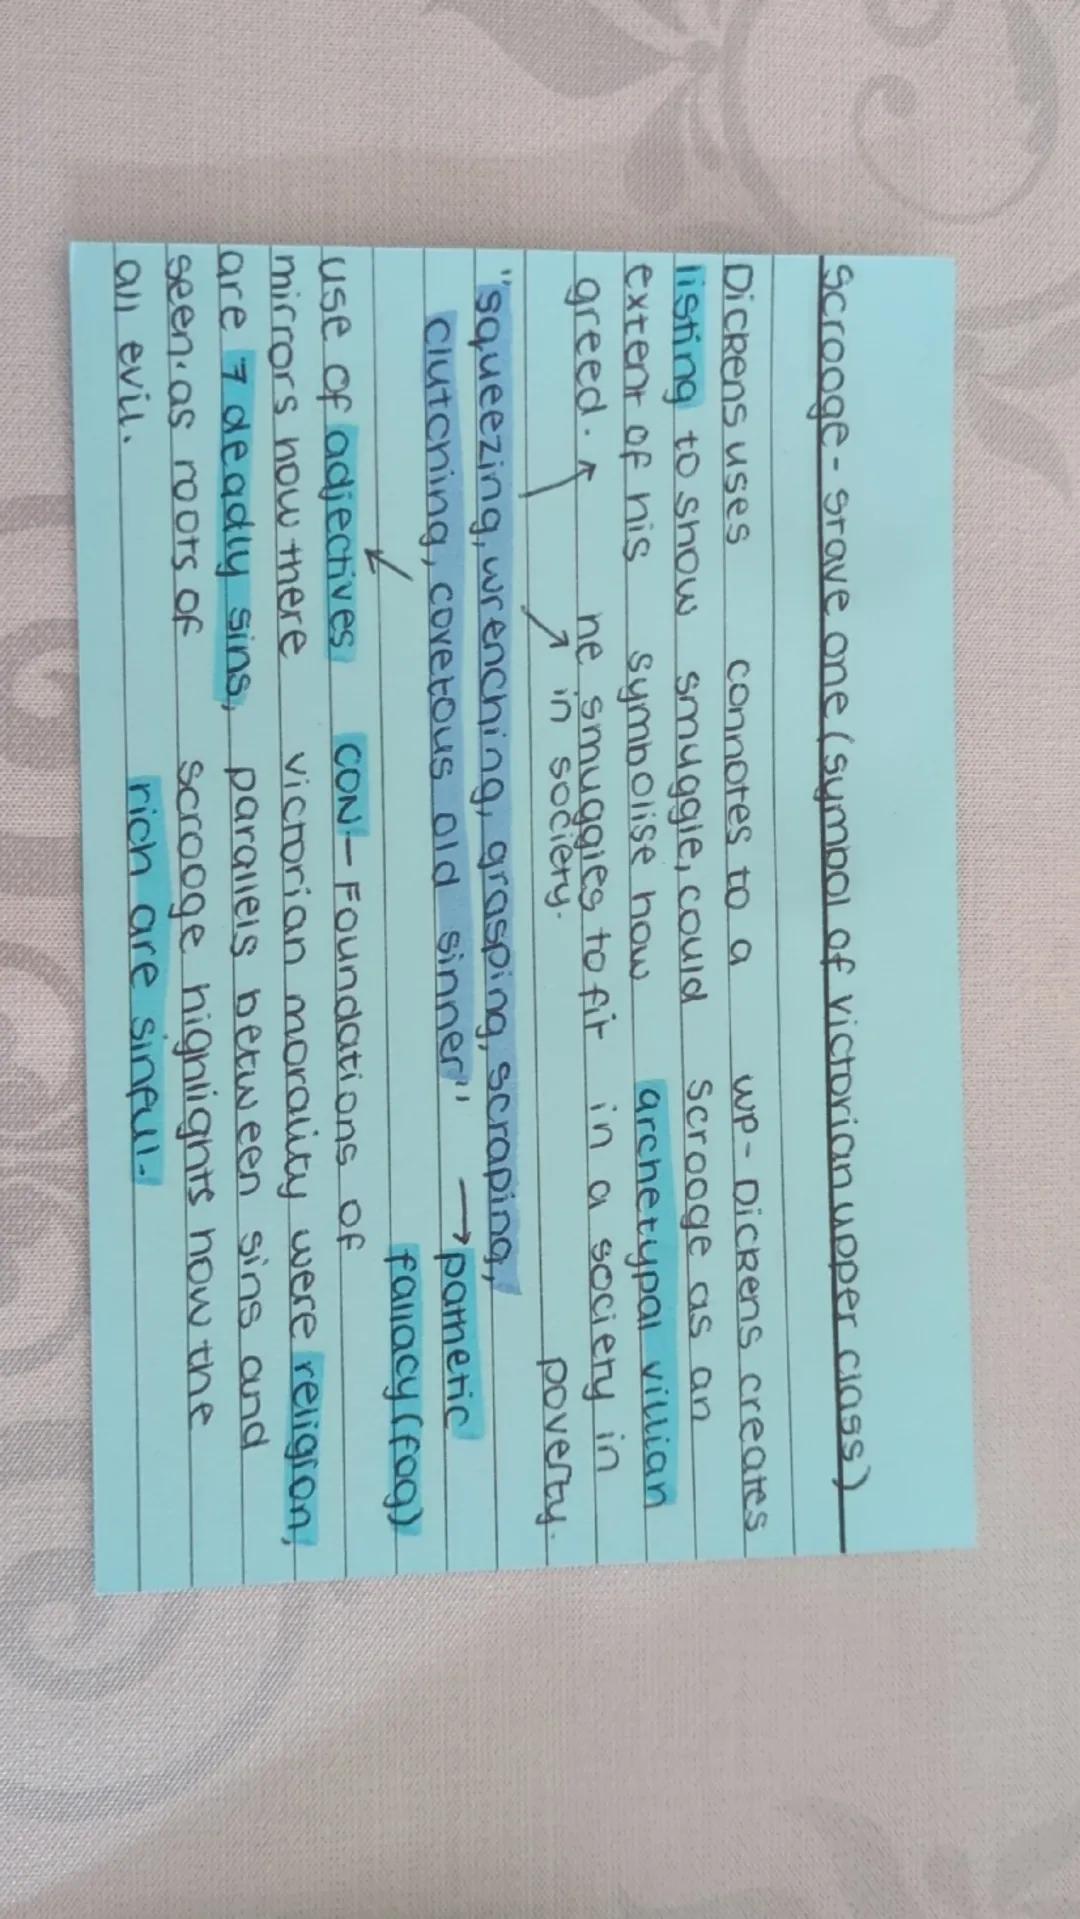 Scrooge - Stave one (symbol of victorian upper class)
Dickens uses connotes to a WP - Dickens creates
listing to show smuggle, could Scrooge as an
extent of his symbolise how archetypal villian
greed. he smuggles to fit in a society in
in society. poverty.
"squeezing, wrenching, grasping, scraping,
clutching, covetous old sinner" → pathetic
fallacy (fog)
use of adjectives CON - Foundations of
mirrors how there victorian morality were religion,
are 7 deadly sins, parallels between sins and
seen as roots of scrooge highlights how the
all evil. rich are sinful.